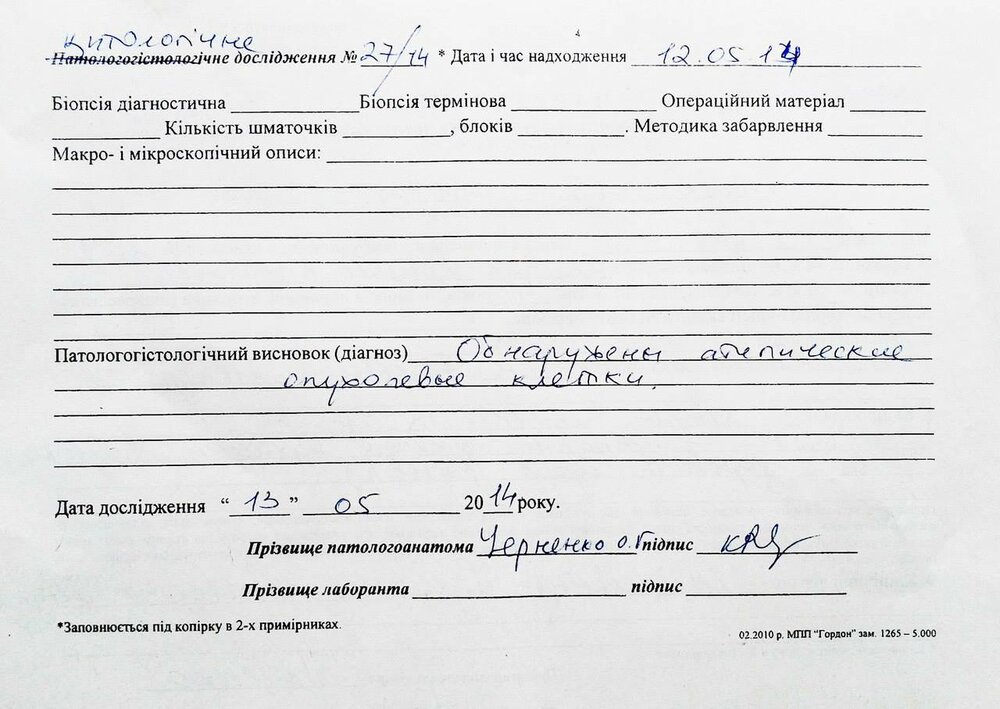 цитологічне
Патологогістологічне дослідження № 27/14 * Дата і час надходження 12.05 14
Біопсія діагностична ____________ Біопсія термінова ____________ Операційний матеріал ________
____________ Кількість шматочків ____________, блоків ____________. Методика забарвлення ____________
Макро- і мікроскопічний описи:
Патологогістологічний висновок (діагноз) Обнаружены атипические
опухолевые клетки.
Дата дослідження “ 13 ” 05 2014 року.
Прізвище патологоанатома Черненко О.Г підпис
Прізвище лаборанта ____________ підпис ____________
*Заповнюється під копірку в 2-х примірниках.
02.2010 р. МПП “Гордон” зам. 1265 – 5.000